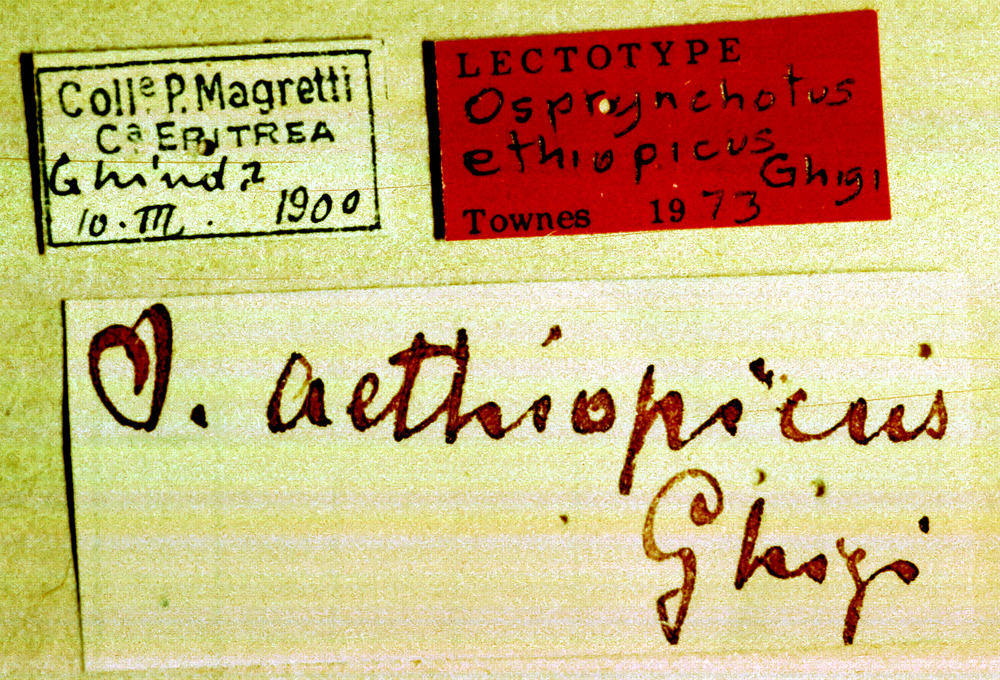 Collᵉ P. Magretti
Cª ERITREA
Ghinda
10.III. 1900
LECTOTYPE
Osprynchotus
ethiopicus
Ghigi
Townes 1973
O. aethiopicus
Ghigi